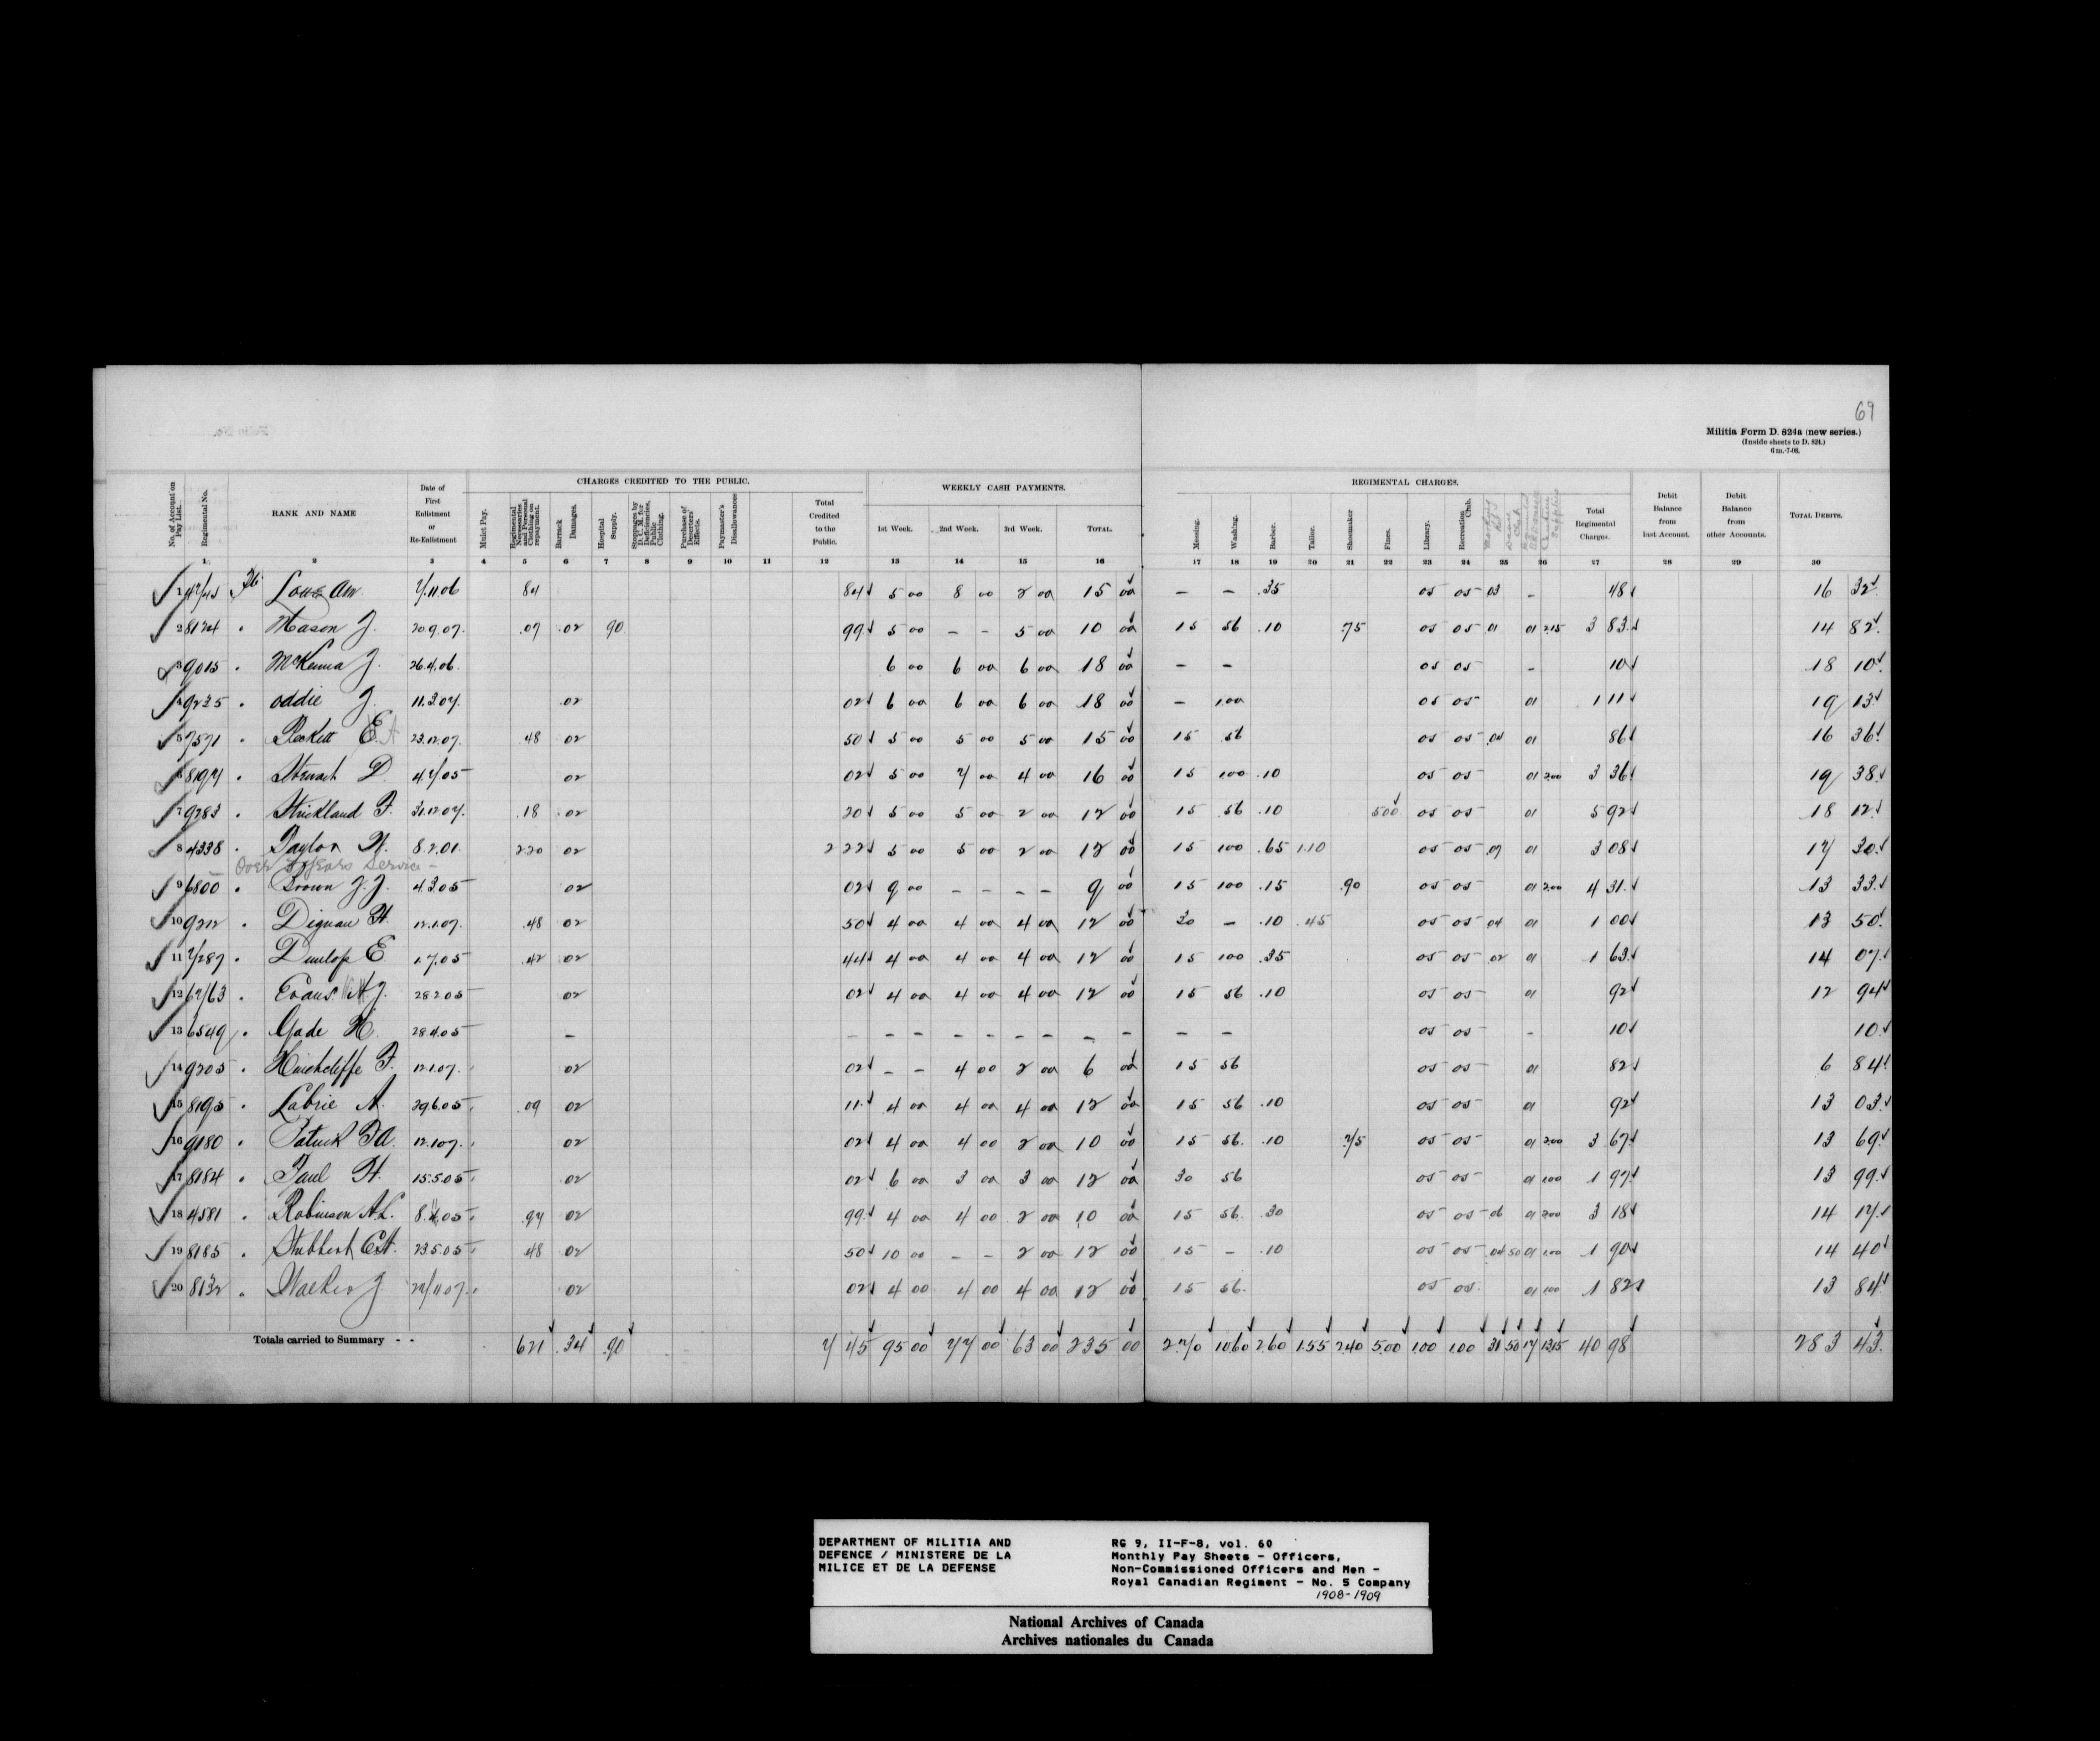 69
Militia Form D. 824a (new series.)
(Inside sheets to D. 824.)
6 m.-7-08.
CHARGES CREDITED TO THE PUBLIC. WEEKLY CASH PAYMENTS. REGIMENTAL CHARGES.
No. of Account on Pay List. Regimental No. RANK AND NAME Date of First Enlistment or Re-Enlistment Mulct Pay. Regimental Necessaries and Personal Clothing on repayment. Barrack Damages. Hospital Supply. Stoppages by D. C. M. for Deficiencies, Public Clothing. Purchase of Deserters' Effects. Paymaster's Disallowances Total Credited to the Public. 1st Week. 2nd Week. 3rd Week. TOTAL. Messing. Washing. Barber. Tailor. Shoemaker Fines. Library. Recreation Club. Total Regimental Charges. Debit Balance from last Account. Debit Balance from other Accounts. TOTAL DEBITS.
1 2 3 4 5 6 7 8 9 10 11 12 13 14 15 16 17 18 19 20 21 23 24 25 26 27 28 29 30
1 7.11.06 84 84 5 00 8 00 2 00 15 00 – – .35 05 05 03 – 48 16 32
2 8124 Mason J. 20.9.07 .07 .02 90 99 5 00 – – 5 00 10 00 15 56 .10 .75 05 05 01 01 2.15 3 83 14 82
3 9015 McKenna J. 26.4.06 6 00 6 00 6 00 18 00 – – 05 05 – 10 18 10
4 9235 Oddie J. 11.3.07 .02 02 6 00 6 00 6 00 18 00 – 1.00 05 05 01 1 11 19 13
5 7571 E. 23.12.07 .48 02 50 5 00 5 00 5 00 15 00 15 56 05 05 .04 01 86 16 36
6 8197 Stewart D. 4.7.05 02 02 5 00 7 00 4 00 16 00 15 1.00 .10 05 05 01 2.00 3 36 19 38
7 9283 Strickland F. 31.12.07 .18 02 20 5 00 5 00 2 00 12 00 15 56 .10 5.00 05 05 01 5 92 18 12
8 4338 Taylor H. 8.2.01 2.20 02 2 22 5 00 5 00 2 00 12 00 15 1.00 .65 1.10 05 05 .07 01 3 08 17 30
Over 3 years Service –
9 6800 Brown J.J. 4.3.05 02 02 9 00 – – – – 9 00 15 1.00 .15 .90 05 05 01 2.00 4 31 13 33
10 9212 Dignan H. 12.1.07 .48 02 50 4 00 4 00 4 00 12 00 30 – .10 .45 05 05 04 01 1 00 13 50
11 7287 Dunlop E. 1.7.05 .42 02 44 4 00 4 00 4 00 12 00 15 1.00 .35 05 05 .02 01 1 63 14 07
12 6763 Evans A.J. 28.2.05 02 02 4 00 4 00 4 00 12 00 15 56 .10 05 05 01 92 12 94
13 6549 Gade H. 28.4.05 – – – – – – – – – – – 05 05 – 10 10
14 9205 Hinchcliffe F. 12.1.07 02 02 – – 4 00 2 00 6 00 15 56 05 05 01 82 6 84
15 8195 Labrie A. 29.6.05 .09 02 11 4 00 4 00 4 00 12 00 15 56 .10 05 05 01 92 13 03
16 9180 Patrick F.A. 12.1.07 02 02 4 00 4 00 2 00 10 00 15 56 .10 .75 05 05 01 2.00 3 67 13 69
17 8184 Paul H. 15.5.05 02 02 6 00 3 00 3 00 12 00 30 56 05 05 01 1.00 1 97 13 99
18 4581 Robinson A.L. .97 02 99 4 00 4 00 2 00 10 00 15 56 .30 05 05 06 01 2.00 3 18 14 17
19 8185 23.5.05 48 02 50 10 00 – – 2 00 12 00 15 – .10 05 05 .04 50 01 1.00 1 90 14 40
20 8132 Walker J. 02 02 4 00 4 00 4 00 12 00 15 56 05 05 01 1.00 1 82 13 84
Totals carried to Summary - - 6 21 .34 .90 7 45 95 00 77 00 63 00 235 00 2.70 10.60 2.60 1.55 2.40 5.00 1.00 1.00 31 50 17 13.15 40 98 283 43
DEPARTMENT OF MILITIA AND
DEFENCE / MINISTERE DE LA
MILICE ET DE LA DEFENSE
RG 9, II-F-8, vol. 60
Monthly Pay Sheets - Officers,
Non-Commissioned Officers and Men -
Royal Canadian Regiment - No. 5 Company
1908-1909
National Archives of Canada
Archives nationales du Canada